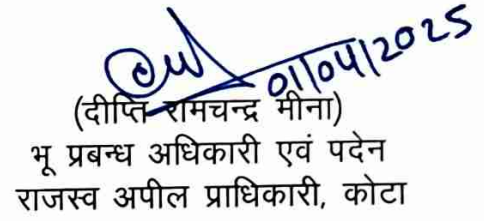 01/04/2025
(दीप्ति रामचन्द्र मीना)
भू प्रबन्ध अधिकारी एवं पदेन
राजस्व अपील प्राधिकारी, कोटा